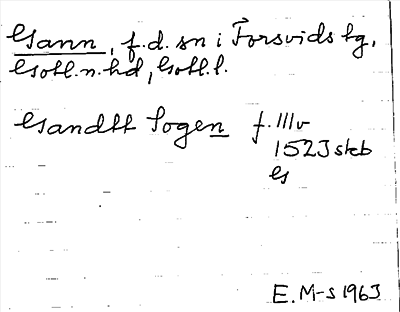 Gann, f.d. sn i Forsvids sg,
Gotl.n.hd, Gotl.l.
Gandtt Sogen f. 111v
1523 skb
G
E. M-s 1963